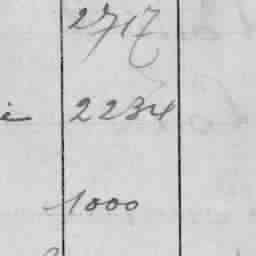 2717
2234
1000